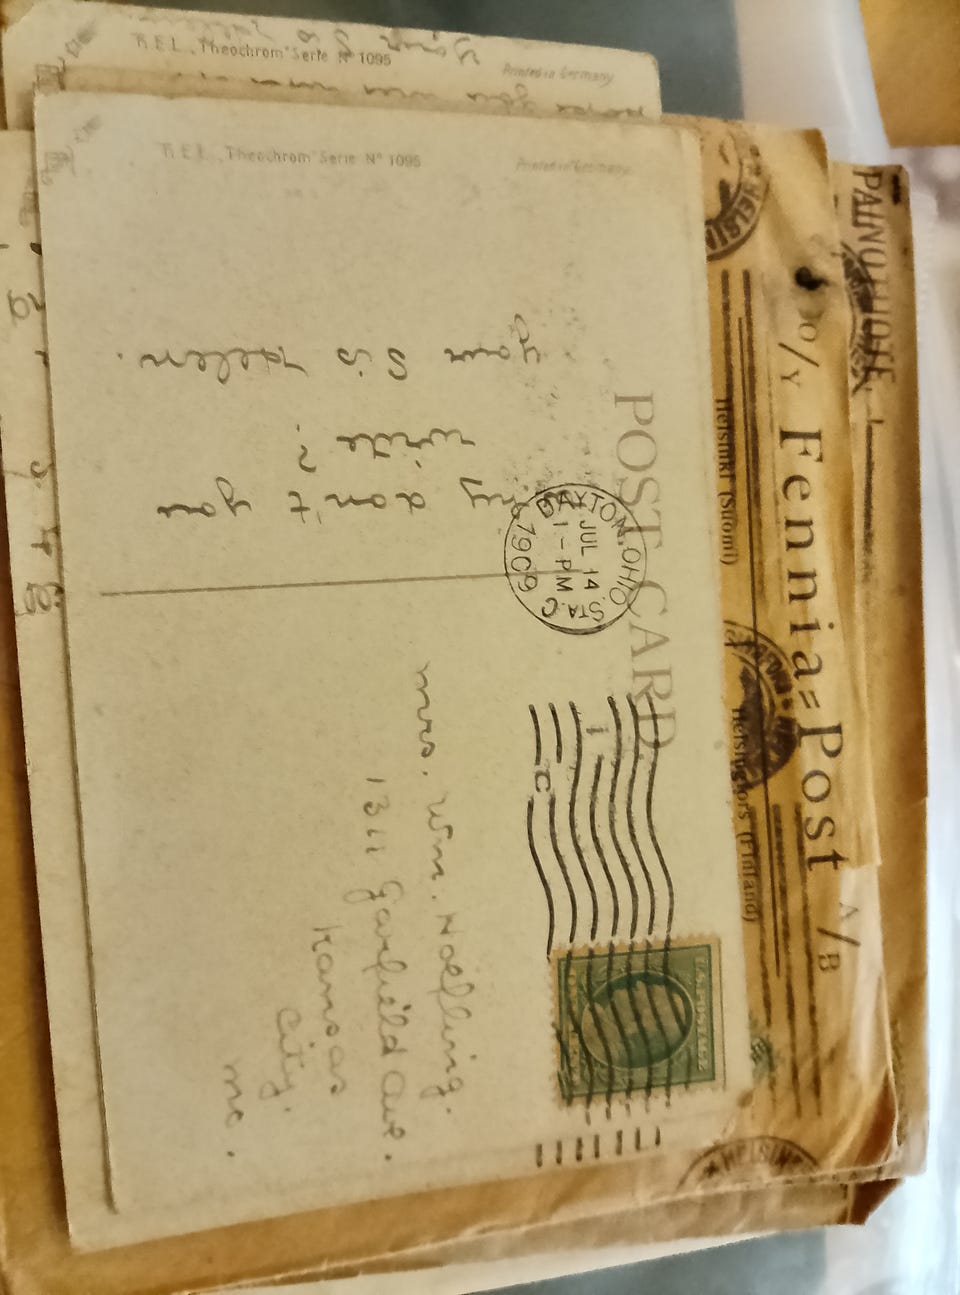 Serie Nº 1095
Printed in Germany
"Theochrom" Serie Nº 1095
Printed in Germany
POST CARD
DAYTON, OHIO
JUL 14
1 - PM
1909
STA. C
C
why don't you
write?
your sis Helen.
Mrs. Wm. Hoefling.
1311 Garfield Ave.
Kansas
City.
Mo.
O/Y Fennia=Post A/B
Helsinki (Suomi)
Helsingfors (Finland)
HELSIN